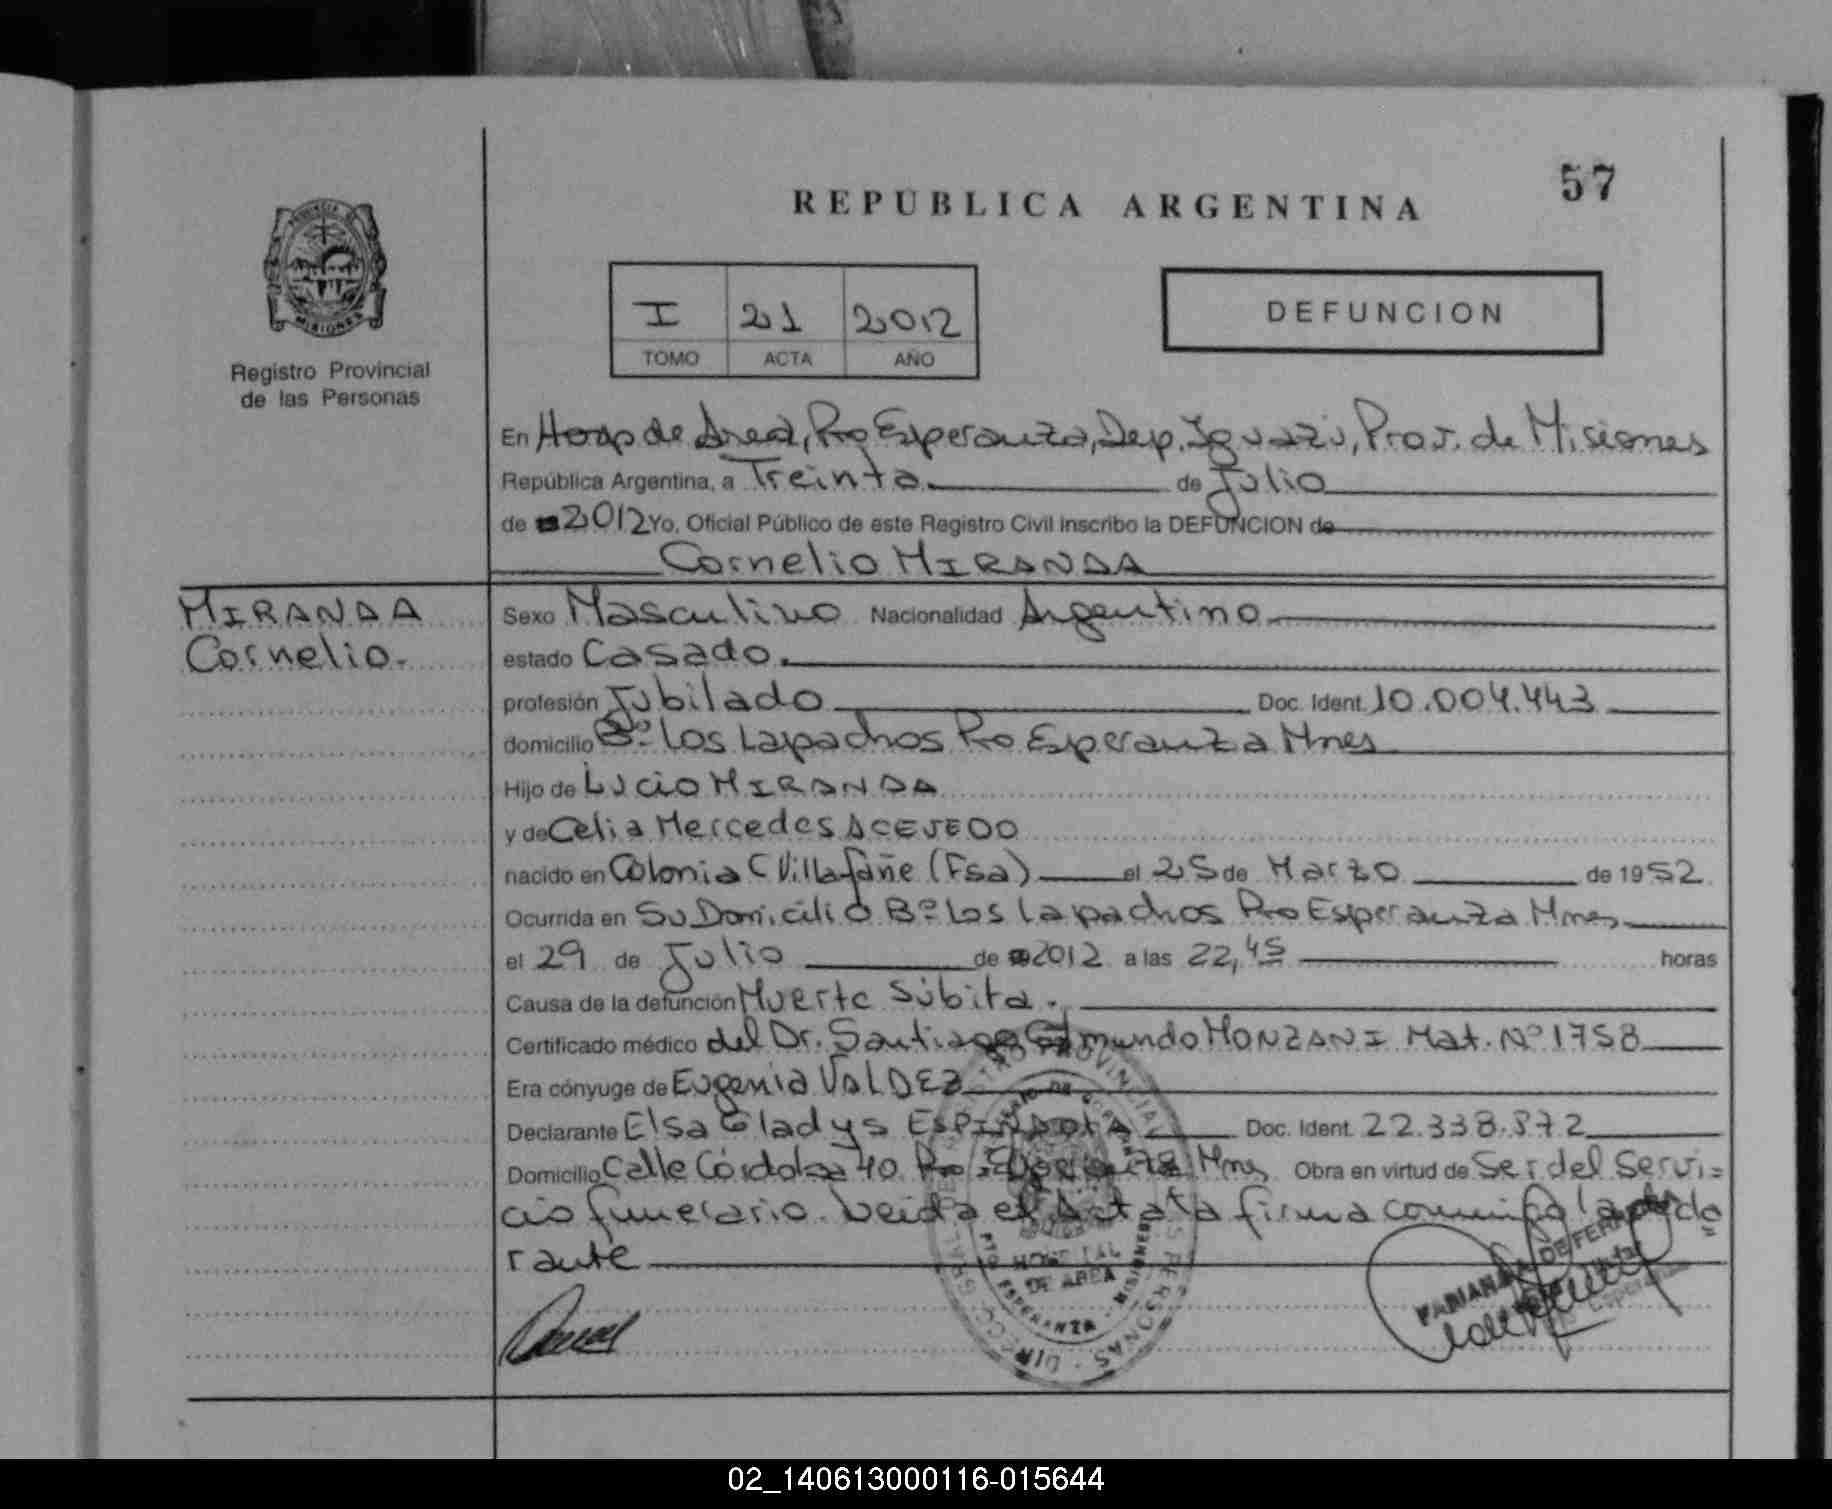 57
REPUBLICA ARGENTINA
PROVINCIA DE
MISIONES
Registro Provincial
de las Personas
I 21 2012
TOMO ACTA AÑO
DEFUNCION
En Hosp de Area, Pto Esperanza, Dep. Iguazú, Prov. de Misiones
República Argentina, a Treinta de Julio
de 2012 Yo, Oficial Público de este Registro Civil inscribo la DEFUNCION de
Cornelio MIRANDA
MIRANDA
Cornelio.
Sexo Masculino Nacionalidad Argentino
estado Casado.
profesión Jubilado Doc. Ident. 10.004.443
domicilio Bº Los Lapachos Pto Esperanza Mnes
Hijo de Lucio MIRANDA
y de Celia Mercedes ACEVEDO
nacido en Colonia C Villafañe (Fsa) el 25 de Marzo de 1952
Ocurrida en Su Domicilio Bº Los Lapachos Pto Esperanza Mnes
el 29 de Julio de 2012 a las 22,45 horas
Causa de la defunción Muerte Súbita.
Certificado médico del Dr. Santiago Edmundo MONZANI Mat. Nº 1758
Era cónyuge de Eugenia VALDEZ
Declarante Elsa Gladys ESPINDOLA Doc. Ident. 22.338.872
Domicilio Calle Córdoba 40 Pto Esperanza Mnes Obra en virtud de Ser del Servi=
cio funerario. Leida el Acta la firma conmigo la decla=
rante
HOSPITAL
DE AREA
PTO ESPERANZA - MISIONES
02_140613000116-015644